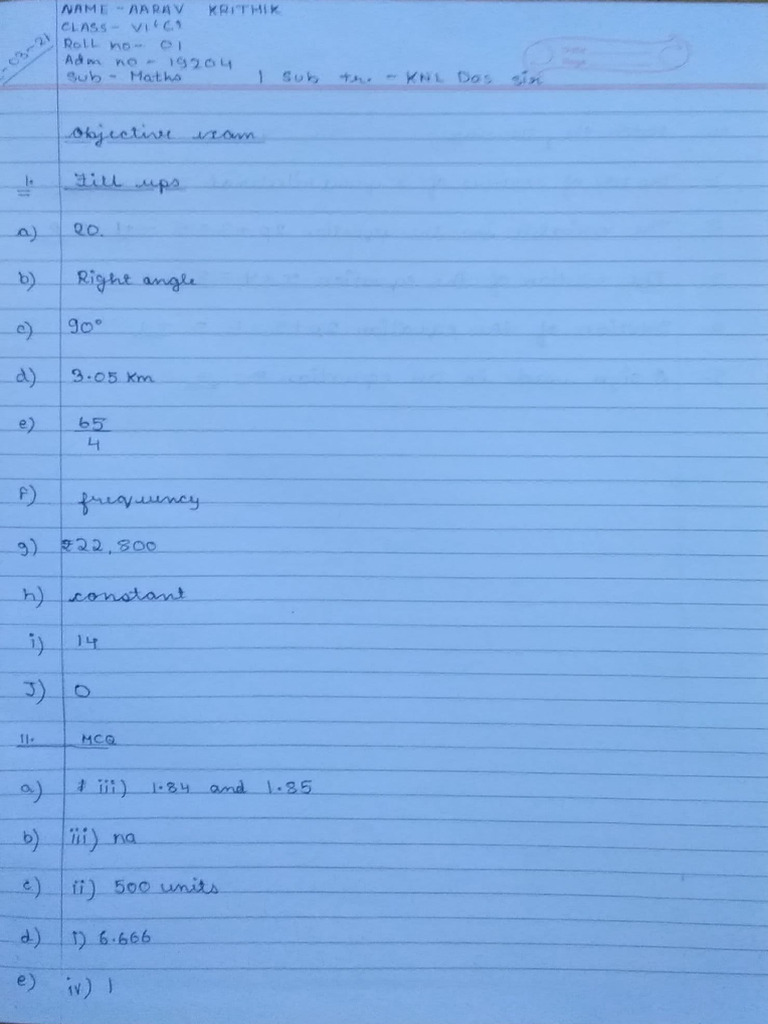 NAME - AARAV KRITHIK
CLASS - VI 'C'
-03-21
Roll no - 01
Adm no - 19204
Sub - Maths | Sub tr. - KNL Das sir
Objective exam
I. Fill ups
a) 20.
b) Right angle
c) 90°
d) 3.05 km
e) 65/4
f) frequency
g) ₹22,800
h) constant
i) 14
J) 0
II. MCQ
a) iii) 1.84 and 1.85
b) iii) na
c) ii) 500 units
d) i) 6.666
e) iv) 1